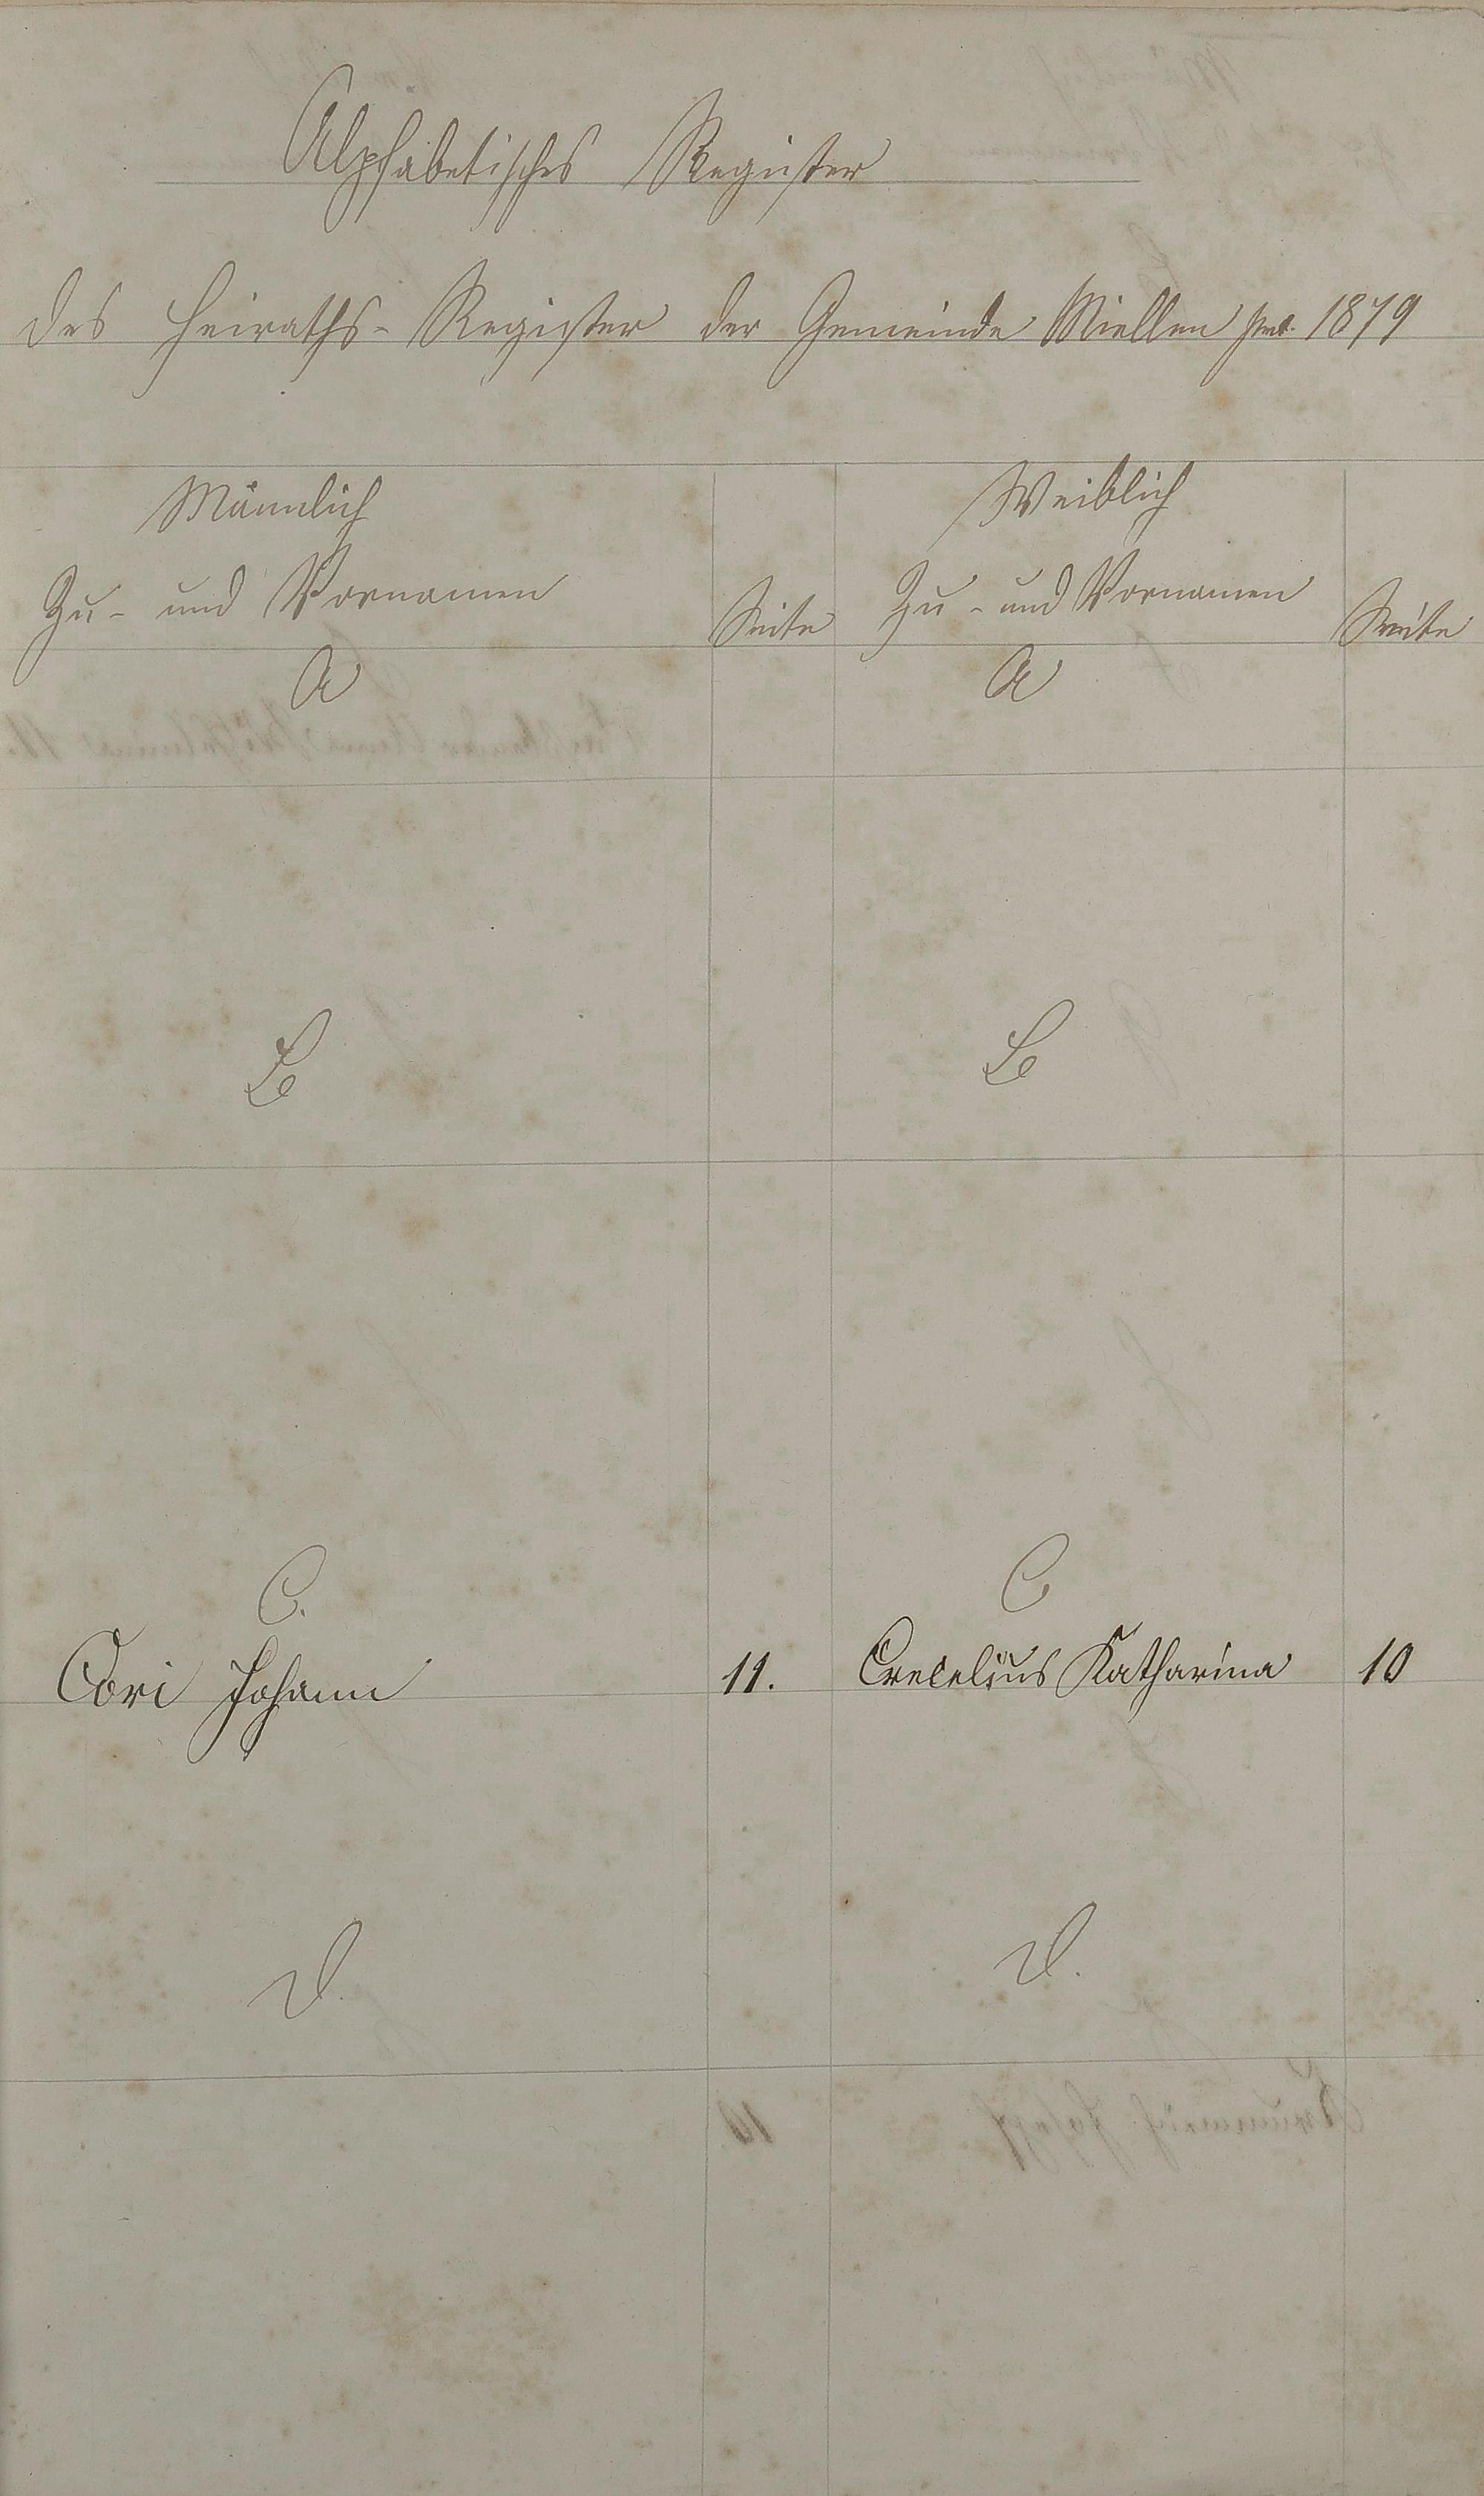 Alphabetisches Register
des Heiraths-Register der Gemeinde Miellen pro 1879
Männlich
Weiblich
Zu- und Vornamen Seite Zu- und Vornamen Seite
A A
B B
C. C
Cori Johann 11. Crecelius Katharina 10
D. D.